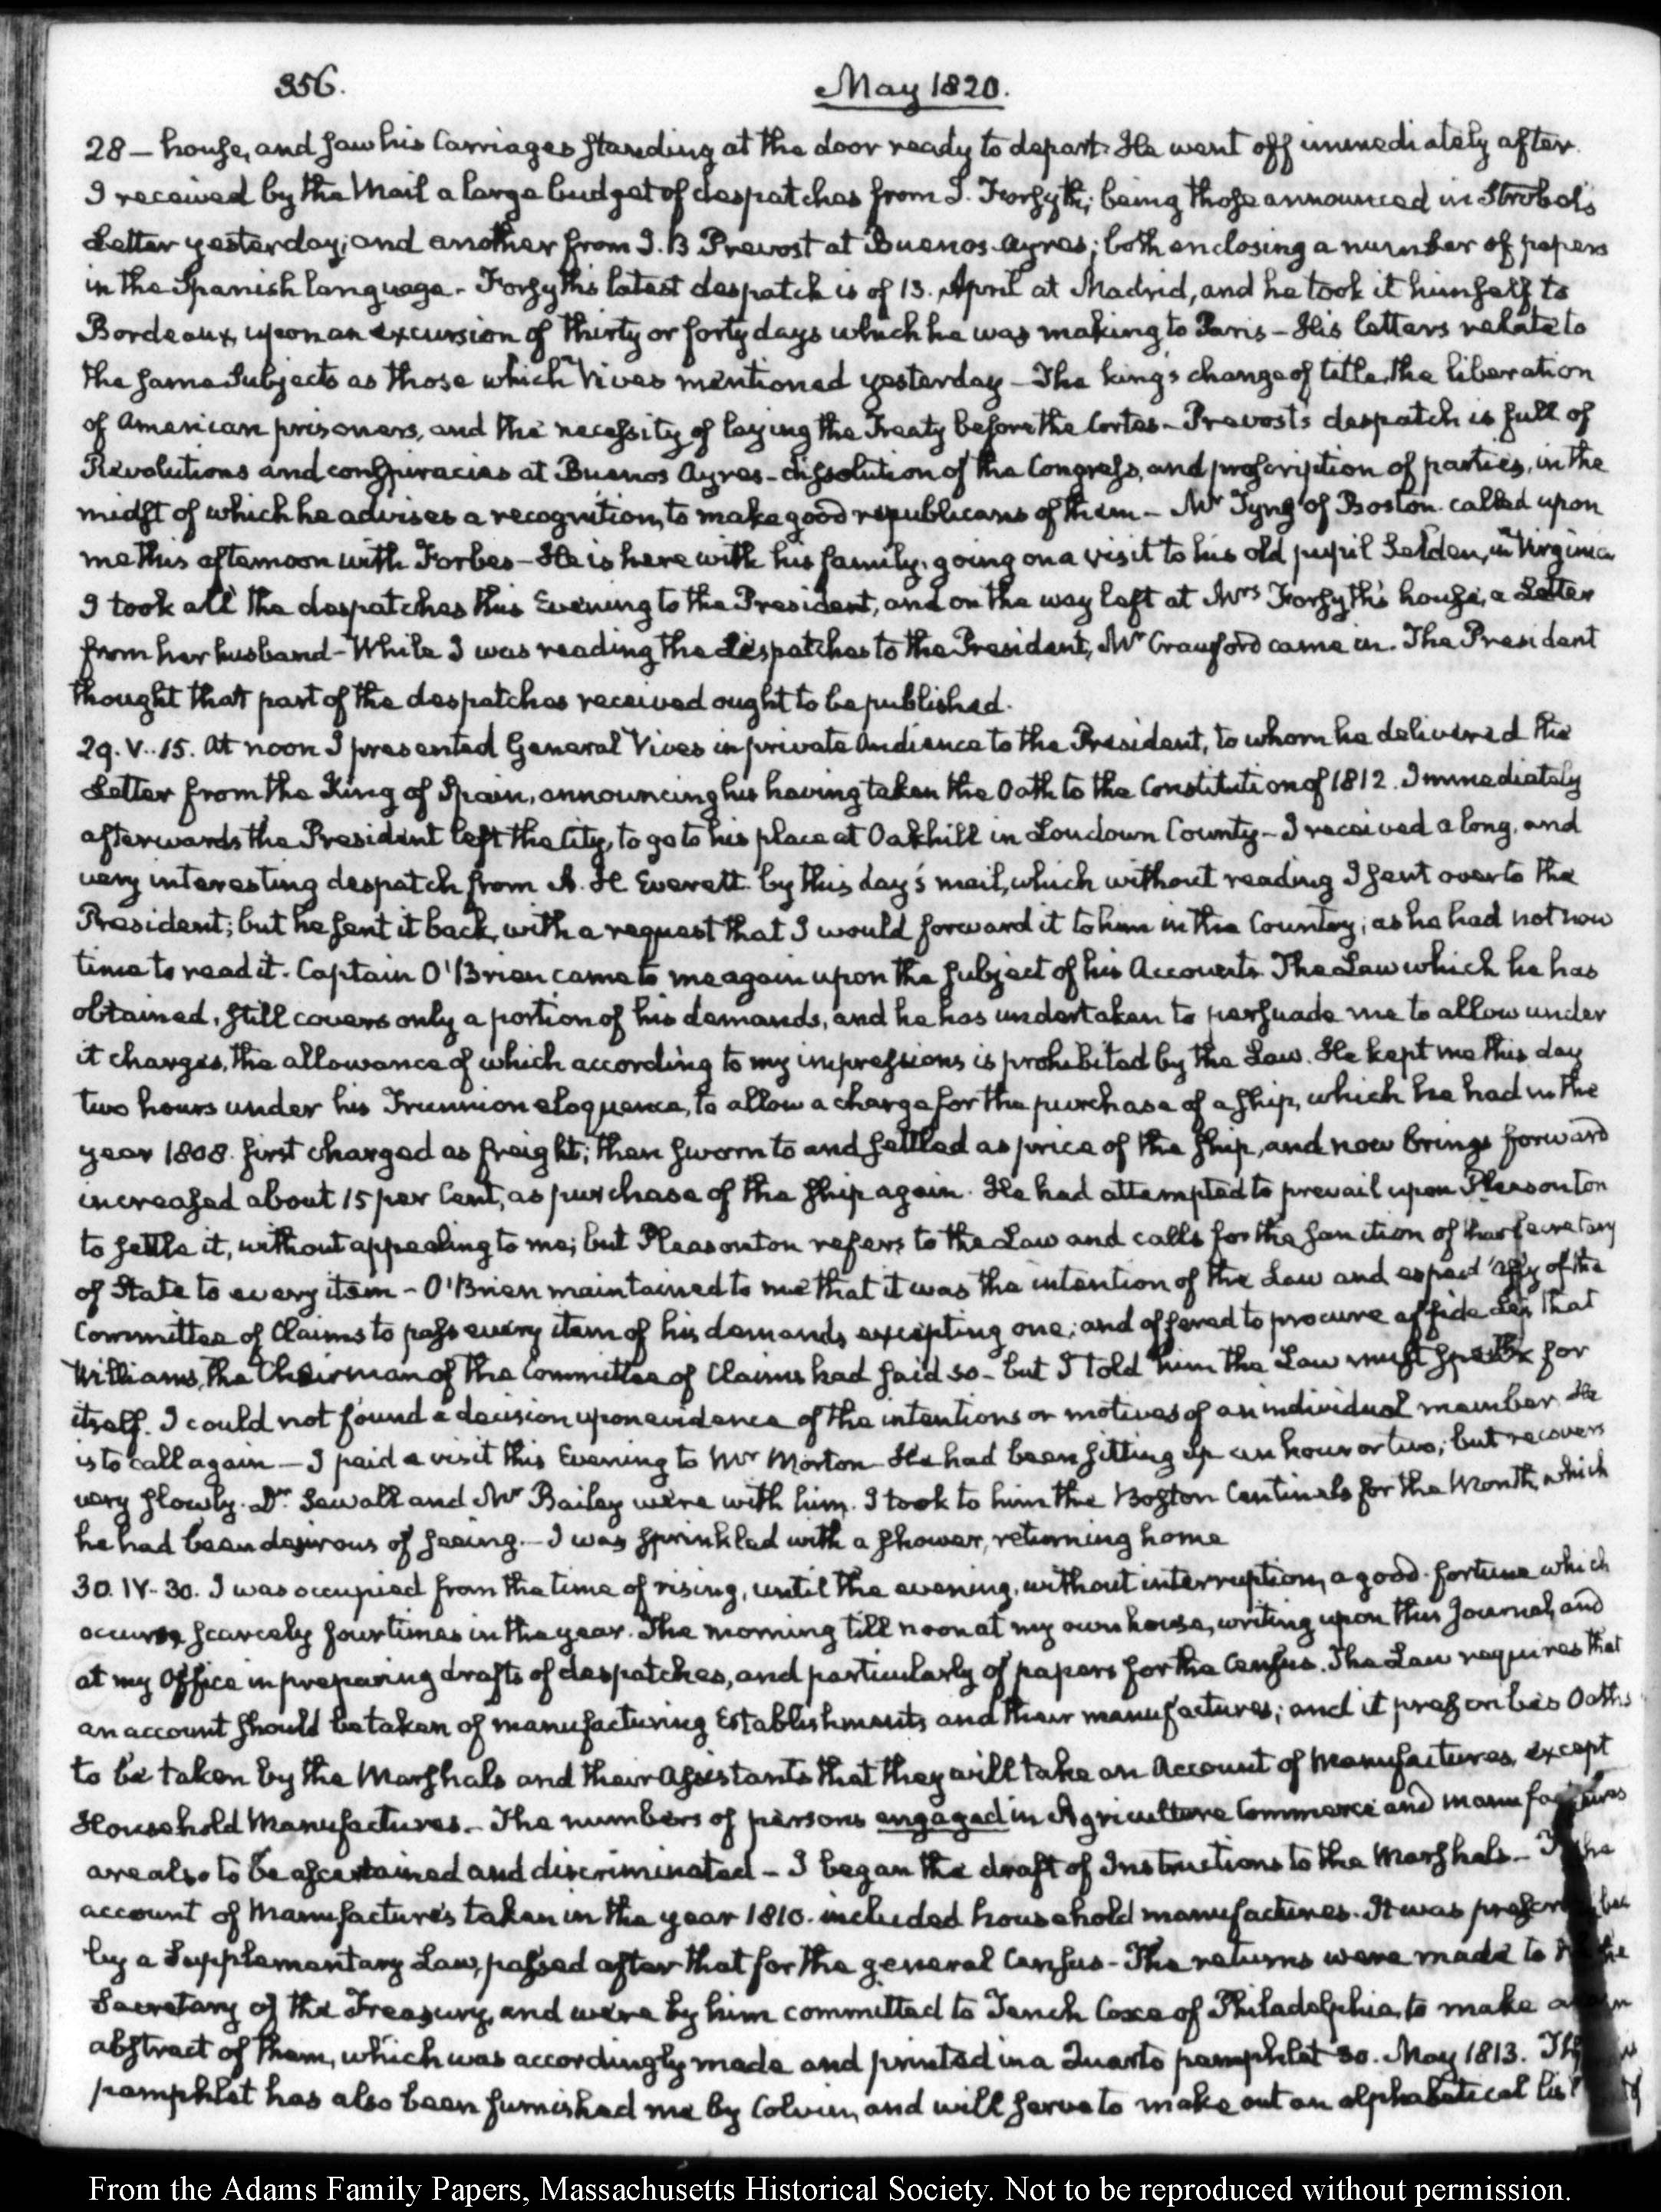 356.
May 1820.
28 — house, and saw his Carriages standing at the door ready to depart. He went off immediately after.
I received by the Mail a large budget of despatches from J. Forsyth; being those announced in Strobel's
Letter yesterday; and another from J. B Prevost at Buenos-Ayres; both enclosing a number of papers
in the Spanish language. Forsyth's latest despatch is of 13. April at Madrid, and he took it himself to
Bordeaux, upon an excursion of thirty or forty days which he was making to Paris — His letters relate to
the same Subjects as those which Vives mentioned yesterday — The king's change of title, the liberation
of American prisoners, and the necessity of laying the Treaty before the Cortes — Prevost's despatch is full of
Revolutions and conspiracies at Buenos Ayres — dissolution of the Congress, and proscription of parties, in the
midst of which he advises a recognition, to make good republicans of them — Mr Tyng of Boston called upon
me this afternoon with Forbes — He is here with his family, going on a visit to his old pupil Selden, in Virginia
I took all the despatches this Evening to the President, and on the way left at Mrs Forsyth's house, a Letter
from her husband — While I was reading the dispatches to the President, Mr Crawford came in. The President
thought that part of the despatches received ought to be published.
29. V..15. At noon I presented General Vives in private Audience to the President, to whom he delivered the
Letter from the King of Spain, announcing his having taken the Oath to the Constitution of 1812. Immediately
afterwards the President left the City, to go to his place at Oakhill in Loudown County — I received a long, and
very interesting despatch from A. H Everett by this day's mail, which without reading I sent over to the
President; but he sent it back, with a request that I would forward it to him in the Country; as he had not now
time to read it. Captain O'Brien came to me again upon the subject of his Accounts. The Law which he has
obtained, still covers only a portion of his demands, and he has undertaken to persuade me to allow under
it charges, the allowance of which according to my impressions is prohibited by the Law. He kept me this day
two hours under his Trunnion eloquence, to allow a charge for the purchase of a ship, which he had in the
year 1808. first charged as freight; then sworn to and settled as price of the ship, and now brings forward
increased about 15 per Cent, as purchase of the ship again. He had attempted to prevail upon Pleasonton
to settle it, without appealing to me; but Pleasonton refers to the Law and calls for the sanction of the Secretary
of State to every item — O'Brien maintained to me that it was the intention of the Law and especially of the
Committee of Claims to pass every item of his demands, excepting one; and offered to procure affidavits that
Williams, the Chairman of the Committee of Claims had said so — but I told him the Law must speak for
itself. I could not found a decision upon evidence of the intentions or motives of an individual member. He
is to call again — I paid a visit this Evening to Mr Morton He had been sitting up an hour or two; but recovers
very slowly. Dr. Sewall and Mr Bailey were with him. I took to him the Boston Centinels for the Month, which
he had been desirous of seeing. — I was sprinkled with a shower, returning home
30. IV-30. I was occupied from the time of rising, until the evening, without interruption, a good fortune which
occurs scarcely four times in the year. The morning till noon at my own house, writing upon this Journal, and
at my Office in preparing drafts of despatches, and particularly of papers for the Census. The Law requires that
an account should be taken of manufacturing Establishments and their manufactures; and it prescribes Oaths
to be taken by the Marshals and their Assistants that they will take an Account of Manufactures, except
Household Manufactures. — The numbers of persons engaged in Agriculture Commerce and manufactures
are also to be ascertained and discriminated — I began the draft of Instructions to the Marshals — The
account of Manufactures taken in the year 1810. included household manufactures. It was prescribed
by a Supplementary Law, passed after that for the general Census — The returns were made to the
Secretary of the Treasury, and were by him committed to Tench Coxe of Philadelphia, to make an
abstract of them, which was accordingly made and printed in a Quarto pamphlet 30. May 1813. This
pamphlet has also been furnished me by Colvin, and will serve to make out an alphabetical list of
From the Adams Family Papers, Massachusetts Historical Society. Not to be reproduced without permission.